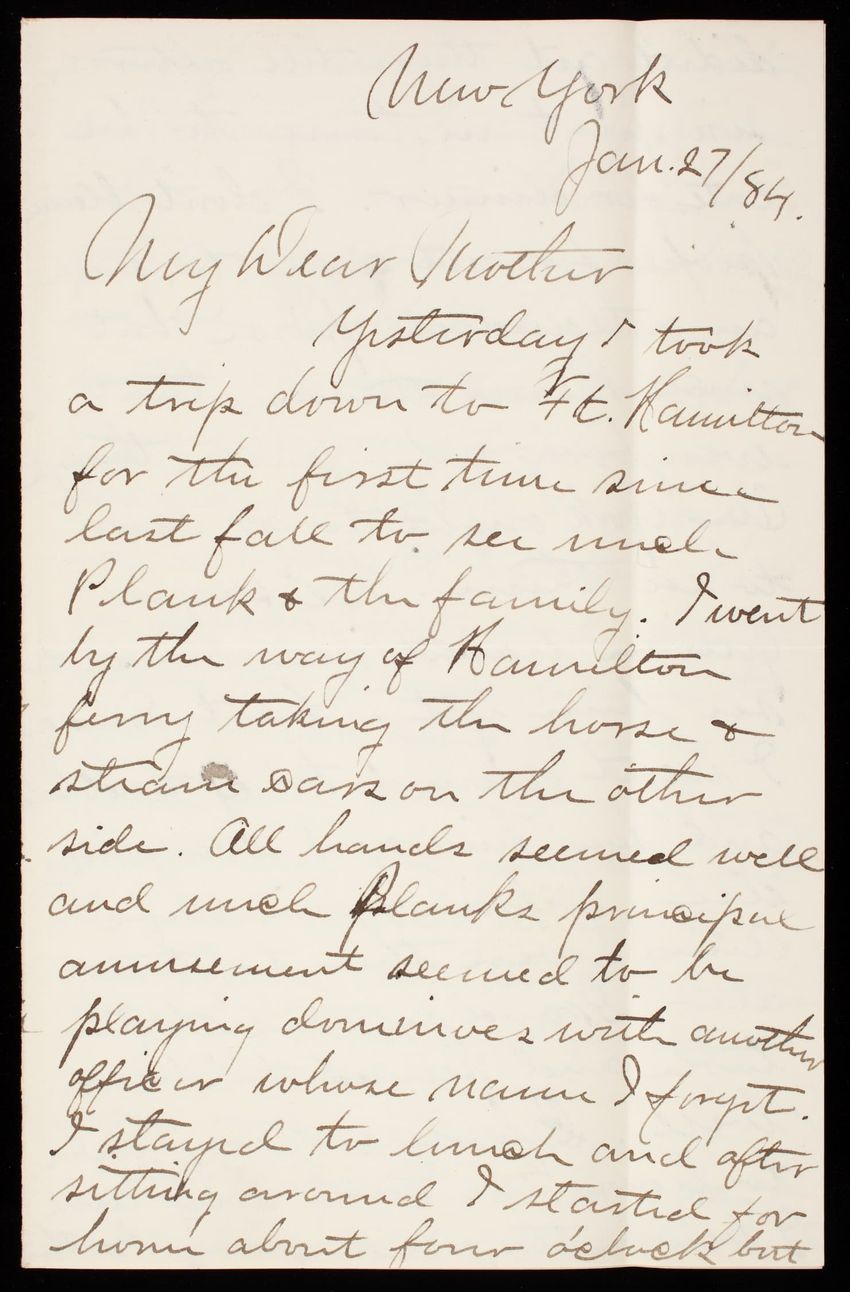 New York
Jan. 27/84.
My Dear Mother
Yesterday I took
a trip down to Ft. Hamilton
for the first time since
last fall to see uncle
Plank & the family. I went
by the way of Hamilton
ferry taking the horse &
steam cars on the other
side. All hands seemed well
and uncle Planks principal
amusement seemed to be
playing dominoes with another
officer whose name I forget.
I stayed to lunch and after
sitting around I started for
home about four o'clock but